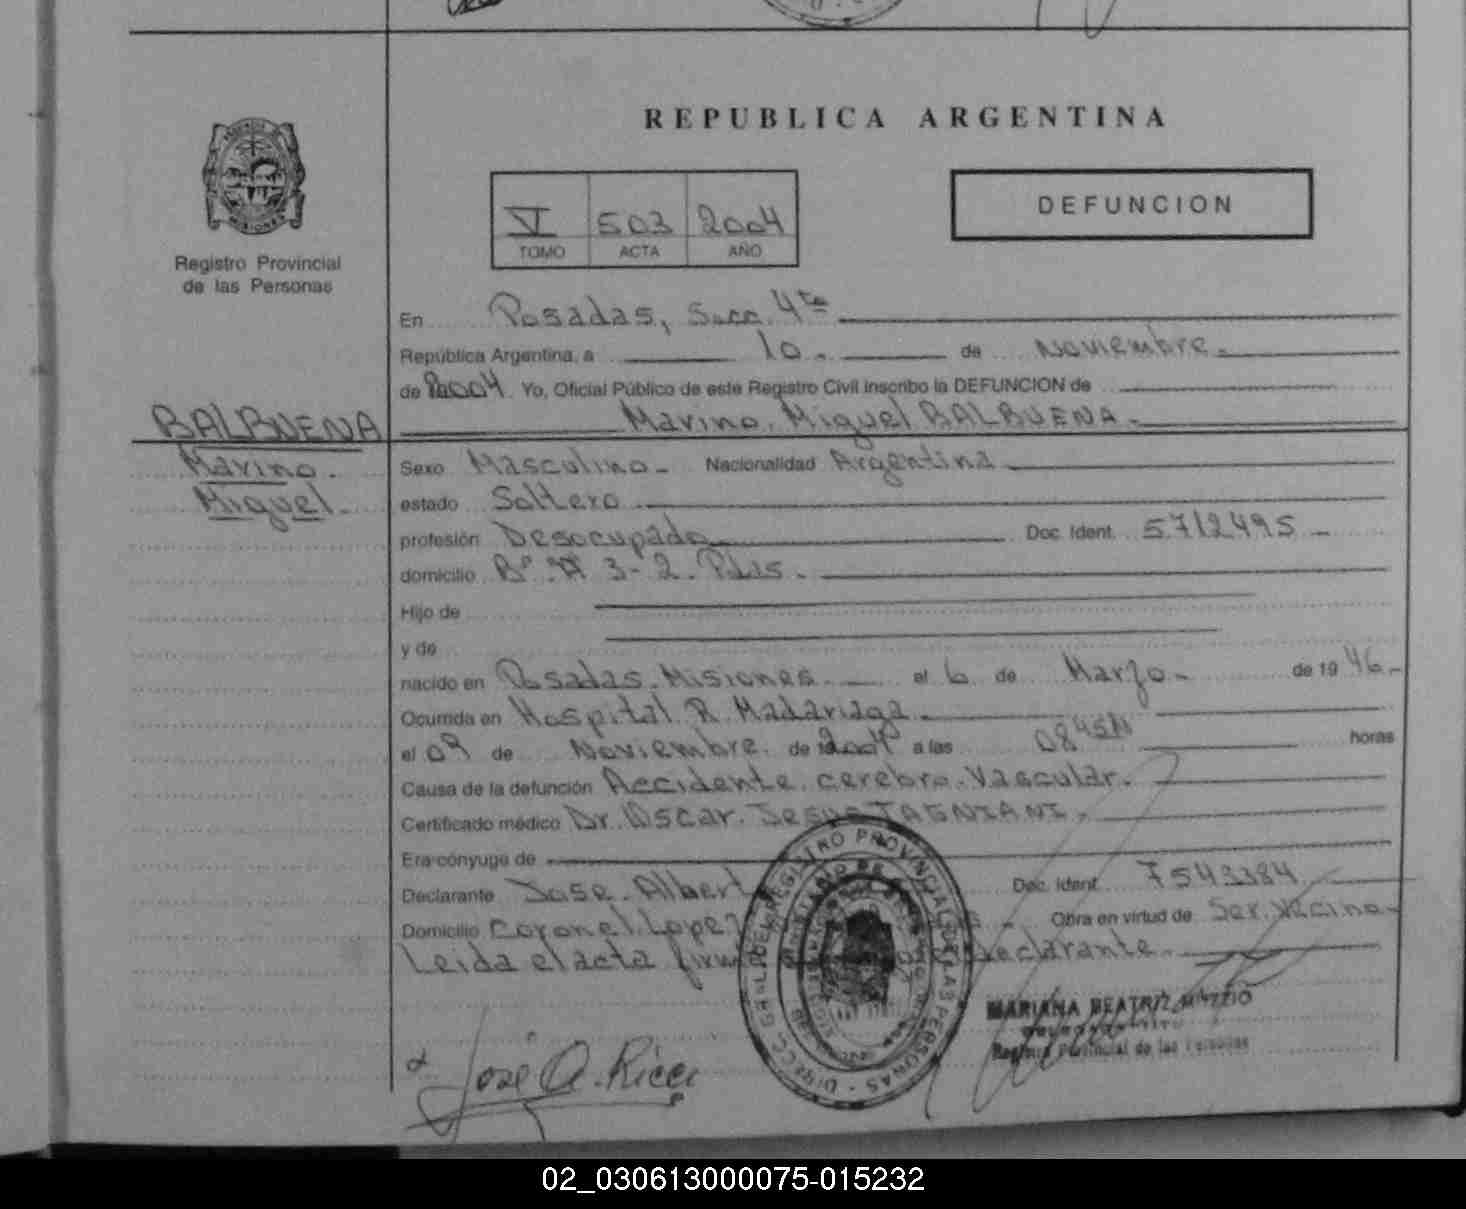 REPUBLICA ARGENTINA
DEFUNCION
V 503 2004
TOMO ACTA AÑO
Registro Provincial
de las Personas
En Posadas, Secc. 4ta
República Argentina, a 10 de Noviembre
de 2004 Yo, Oficial Público de este Registro Civil inscribo la DEFUNCION de
BALBUENA
Marino
Miguel
Marino, Miguel BALBUENA
Sexo Masculino Nacionalidad Argentina
estado Soltero
profesión Desocupado Doc. Ident. 5712495
domicilio Bº A 3-2. Pdas.
Hijo de
y de
nacido en Posadas, Misiones el 6 de Marzo de 1946
Ocurrida en Hospital R. Madariaga
el 09 de Noviembre de 2004 a las 08 45 horas
Causa de la defunción Accidente cerebro Vascular
Certificado médico Dr. Oscar Jesus TAGNIANI
Era cónyuge de
Declarante Jose Albert Doc. Ident. 7543384
Domicilio Coronel Lopez Obra en virtud de Ser. Vecino
Leida el acta declarante
DIRECC. GRAL. DEL REGISTRO PROVINCIAL DE LAS PERSONAS
MARIANA BEATRIZ
Registro Provincial de las Personas
José A. Ricci
02_030613000075-015232